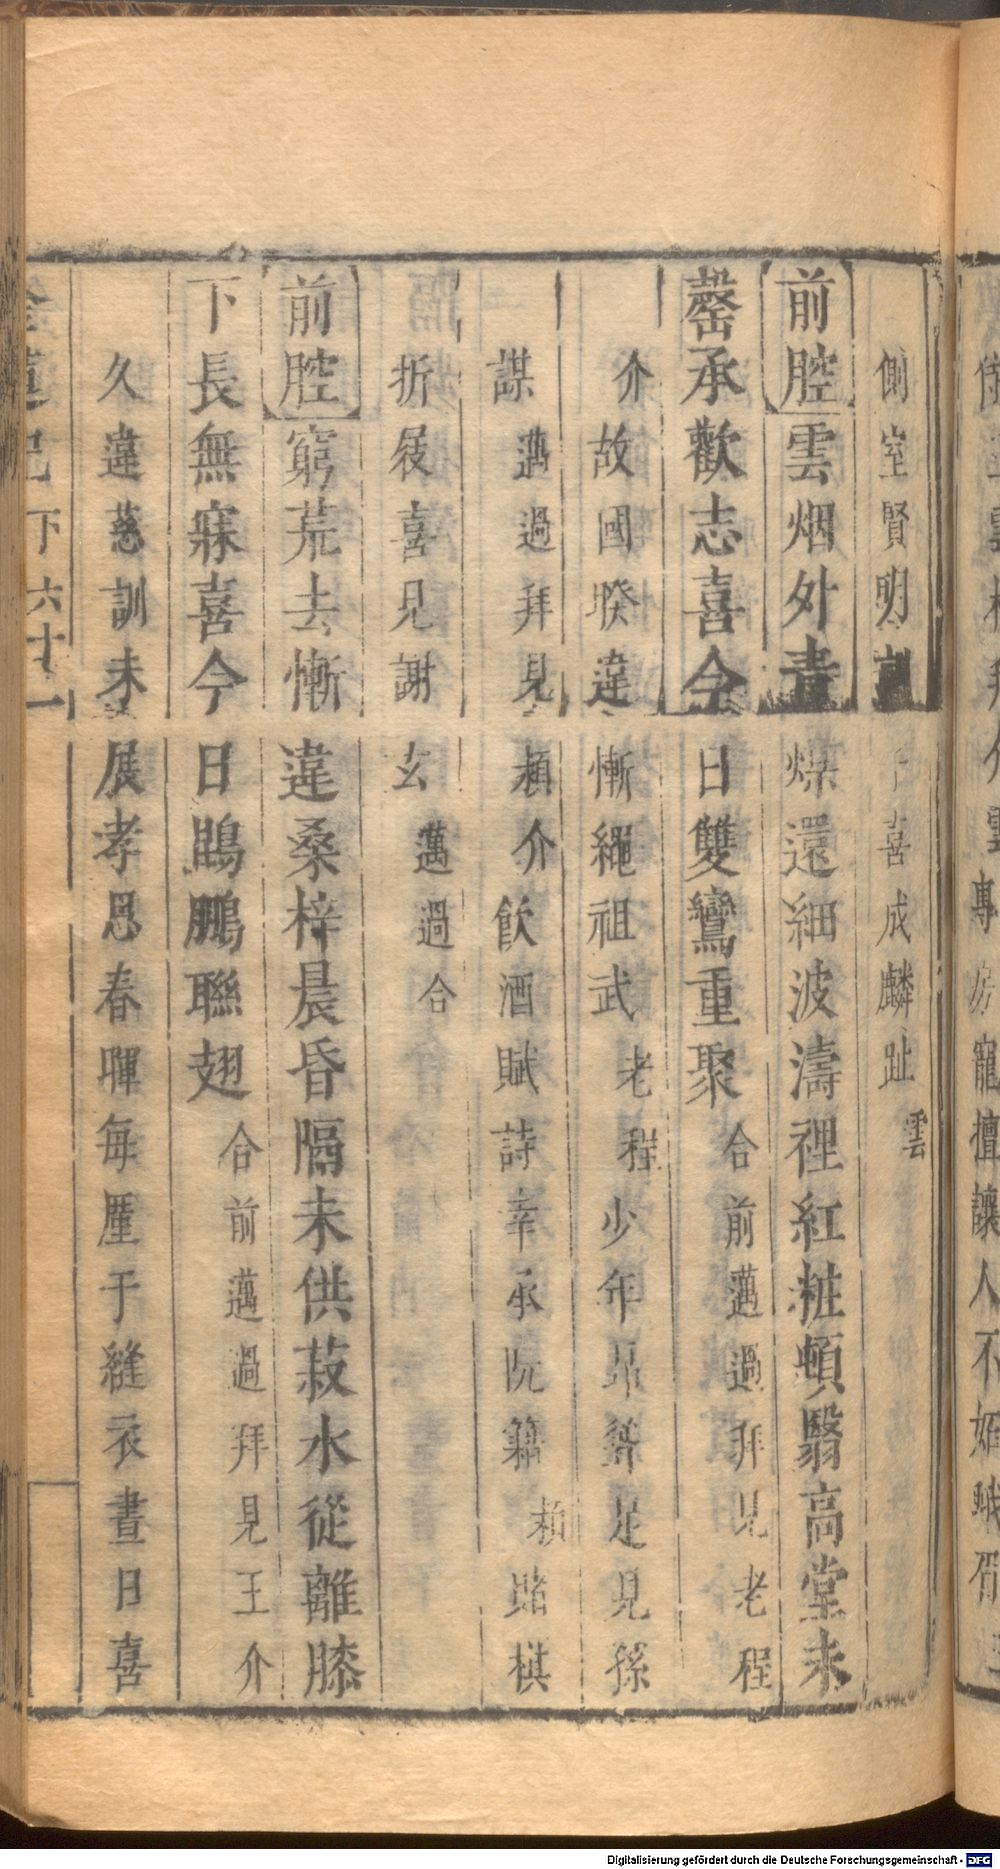 側室賢明喜成麟趾雲
前腔雲烟外還細波濤裡紅粧頓翳高堂未
罄承歡志喜今日雙鸞重聚合前邁過拜見老程
介故國暌違慚繩祖武老程少年足見孫
謀邁過拜見頼介飲酒賦詩幸承阮籍頼賭棋
折屐喜見謝玄邁過合
前腔窮荒去慚違桑梓晨昏隔未供菽水從離膝
下長無寐喜今日鵾鵬聯翅合前邁過拜見王介
久違慈訓未展孝思春暉每歷于縫衣晝日喜
記下六十一
Digitalisierung gefördert durch die Deutsche Forschungsgemeinschaft - DFG